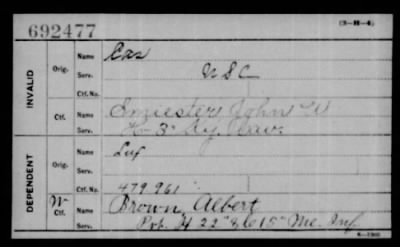 692477
(3—H—4)
INVALID
Orig.
Name
Serv. U S C
Ctf. No.
Ctf.
Name John W
Serv. H 3" Ky. Cav.
DEPENDENT
Orig.
Name
Serv.
Ctf. No. 479.961
W Ctf.
Name Brown Albert
Serv. Pvt. H 22" & 6 15" Me. Inf